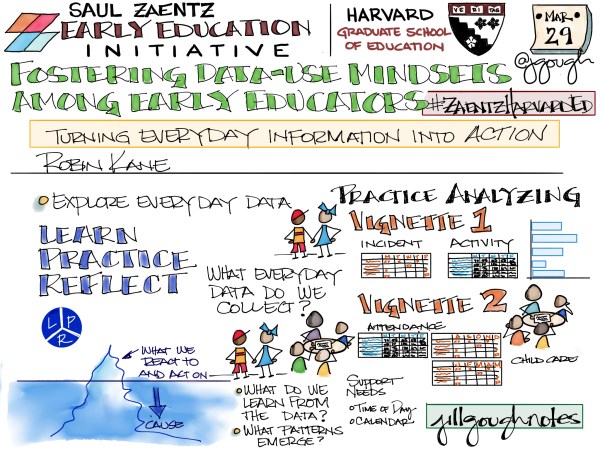 SAUL ZAENTZ
EARLY EDUCATION
INITIATIVE
HARVARD
GRADUATE SCHOOL
OF EDUCATION
VE RI TAS
MAR
29
@jgough
FOSTERING DATA-USE MINDSETS
AMONG EARLY EDUCATORS
#ZAENTZHARVARDED
TURNING EVERYDAY INFORMATION INTO ACTION
ROBIN KANE
EXPLORE EVERYDAY DATA
LEARN
PRACTICE
REFLECT
L P
R
WHAT WE
REACT TO
AND ACT ON
CAUSE
WHAT EVERYDAY
DATA DO WE
COLLECT?
WHAT DO WE
LEARN FROM
THE DATA?
WHAT PATTERNS
EMERGE?
PRACTICE ANALYZING
VIGNETTE 1
INCIDENT
ACTIVITY
VIGNETTE 2
ATTENDANCE
CHILD CARE
SUPPORT
NEEDS
TIME OF DAY
CALENDAR
jillgoughnotes